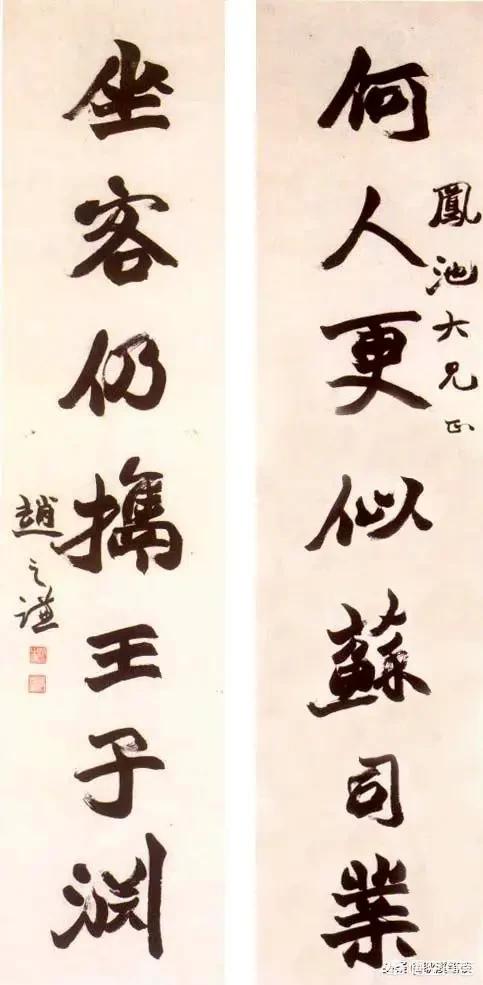 鳳池大兄正
何人更似蘇司業
坐客仍擕王子渕
趙之謙